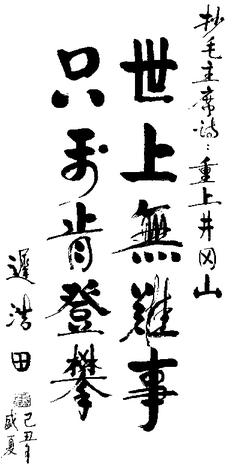 抄毛主席诗：重上井冈山
世上無難事
只要肯登攀
遲浩田
己丑年
盛夏